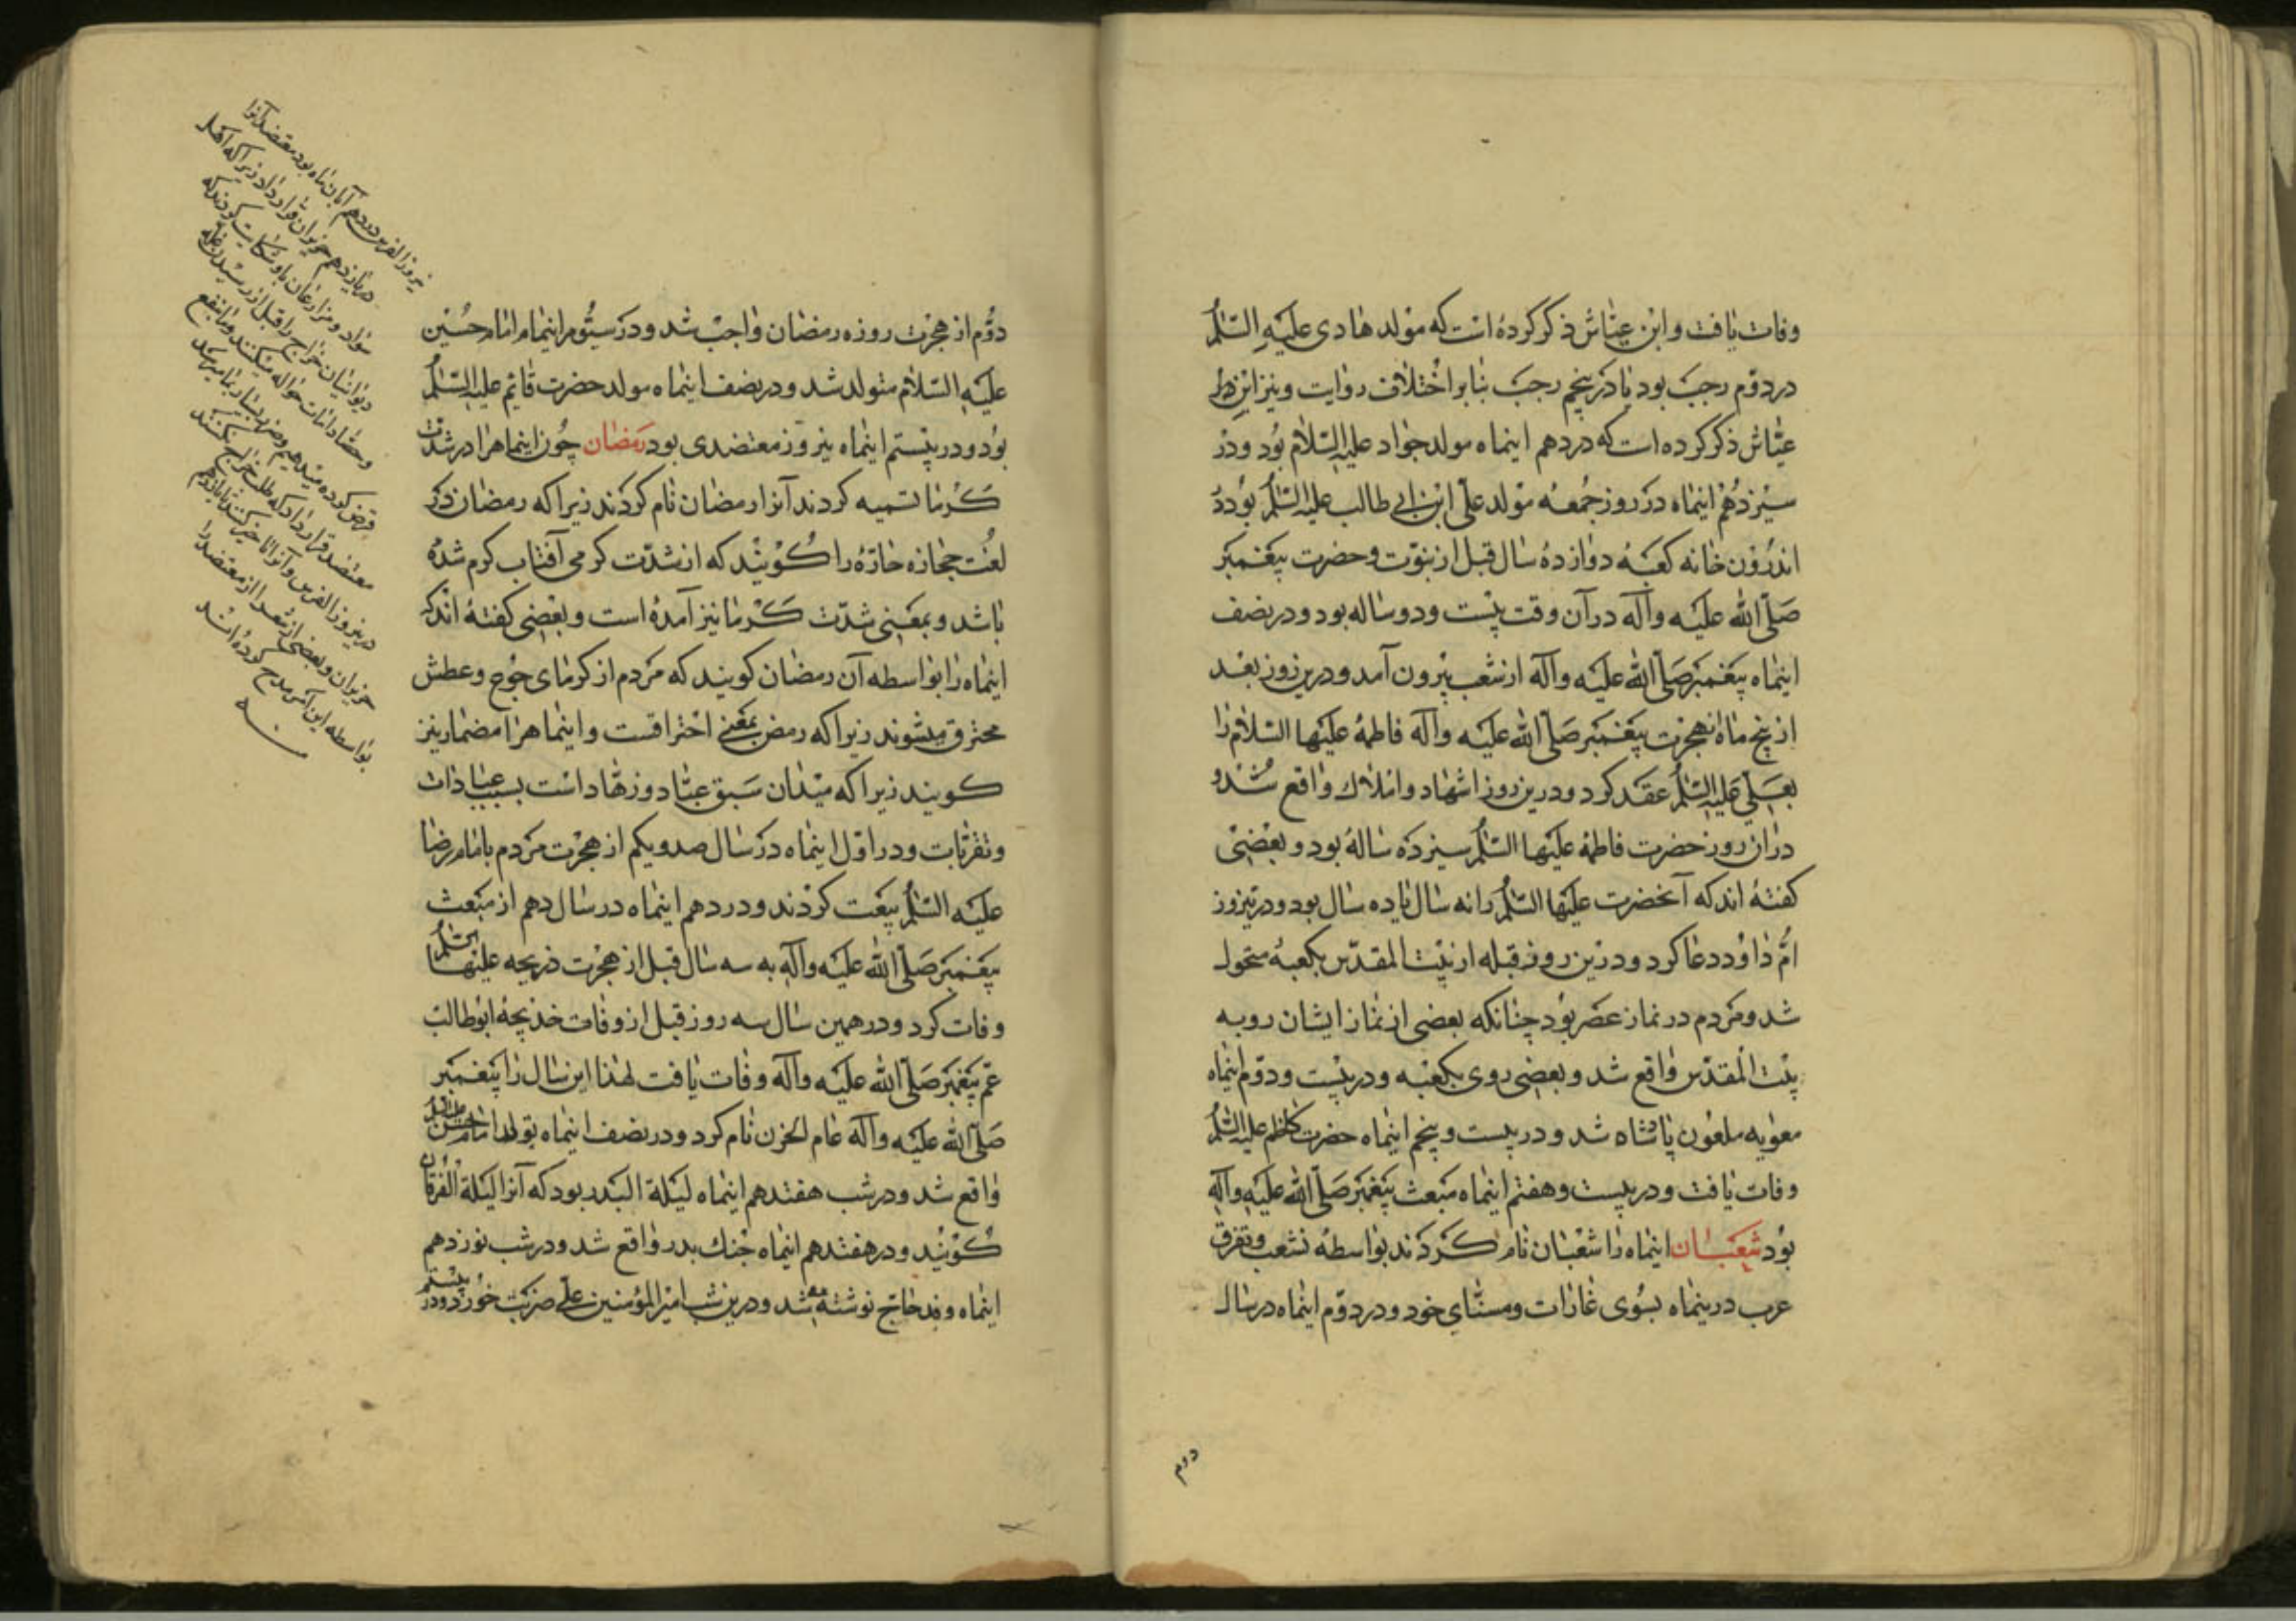 وفات یافت و ابن عیّاش ذکر کرده است که مولد هادی علیه السّلم
در دوّم رجب بود یا در پنجم رجب بنا بر اختلاف روایت و نیز ابن
عیّاش ذکر کرده است که در دهم اینماه مولد جواد علیه السّلام بود و در
سیزدهم اینماه در روز جمعه مولد علی ابن ابی طالب علیه السّلم بود در
اندرون خانه کعبه دوازده سال قبل از نبوّت و حضرت پیغمبر
صلّی الله علیه وآله در آن وقت بیست و دو ساله بود و در نصف
اینماه پیغمبر صلّی الله علیه وآله از شعب بیرون آمد و درین روز بعد
از پنج ماه از هجرت پیغمبر صلّی الله علیه وآله فاطمه علیها السّلام را
بعلی علیه السّلم عقد کرد و درین روز اشهاد و املاک واقع شد و
در آن روز حضرت فاطمه علیها السّلم سیزده ساله بود و بعضی
کفته اند که آنحضرت علیها السّلم را نه سال یا ده سال بود و درین روز
امّ داود دعا کرد و درین روز قبله از بیت المقدّس بکعبه متحول
شد و مردم در نماز عصر بود چنانکه بعضی از نماز ایشان رو به
بیت المقدّس واقع شد و بعضی روی بکعبه و در بیست و دوّم اینماه
معویه ملعون پادشاه شد و در بیست و پنجم اینماه حضرت کاظم علیه السّلم
وفات یافت و در بیست و هفتم اینماه مبعث پیغمبر صلّی الله علیه وآله
بود شعبان اینماه را شعبان نام کردند بواسطه تشعب و تفرق
عرب درینماه بسوی غارات و خود و در دوّم اینماه در سال
دوم
دوّم از هجرت روزه رمضان واجب شد و در سیّوم اینماه امام حسین
علیه السّلام متولد شد و در نصف اینماه مولد حضرت قایم علیه السّلم
بود و در بیستم اینماه نیروز معتضدی بود رمضان چون اینماه را در شدّت
کرما تسمیه کردند آنرا رمضان نام کردند زیرا که رمضان در
لغت حجازه حارّه را کویند که از شدّت کرمی آفتاب کرم شده
باشد و بمعنی شدّت کرما نیز آمده است و بعضی کفته اند که
اینماه را بواسطه آن رمضان کویند که مردم از کرمای جوع و عطش
محترق میشوند زیرا که رمض بمعنی احتراقست و اینماه را مضمار نیز
کویند زیرا که میدان سبق عبّاد و زهّاد است بسبب عبادات
و تقرّبات و در اوّل اینماه در سال صد و یکم از هجرت مردم با امام رضا
علیه السّلم بیعت کردند و در دهم اینماه در سال دهم از مبعث
پیغمبر صلّی الله علیه وآله به سه سال قبل از هجرت خدیجه علیها السّلم
وفات کرد و در همین سال سه روز قبل از وفات خدیجه ابوطالب
عمّ پیغمبر صلّی الله علیه وآله وفات یافت لهذا این سال را پیغمبر
صلّی الله علیه وآله عام الحزن نام کرد و در نصف اینماه تولد امام حسن
واقع شد و در شب هفتدهم اینماه لیلة البدر بود که آنرا لیلة الفرقان
کویند و در هفتدهم اینماه جنک بدر واقع شد و در شب نوزدهم
اینماه وفد حاج نوشته شد و درین شب امیر المؤمنین علی ضربت خورد و در بیستم
نیروز الفرس در دهم آبان ماه بود معتضد آنرا
در یازدهم حزیران قرار داد زیرا که اهل
سواد و مزارعان باو شکایت کردند که
دیوانیان خراج را قبل از رسیدن غله
حواله میکنند و ما
قرض کرده میدهیم و ضرر بسیار بما میرسد
معتضد قرار داد که طلب خراج نکنند
در نیروز الفرس و آنرا تاخیر کنند تا یازدهم
حزیران و بعضی از شعرا از معتضد را
بواسطه این امر مدح کرده اند